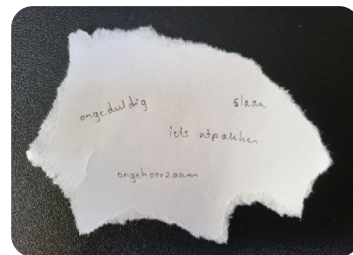 ongeduldig
slaan
iets afpakken
ongehoorzaam